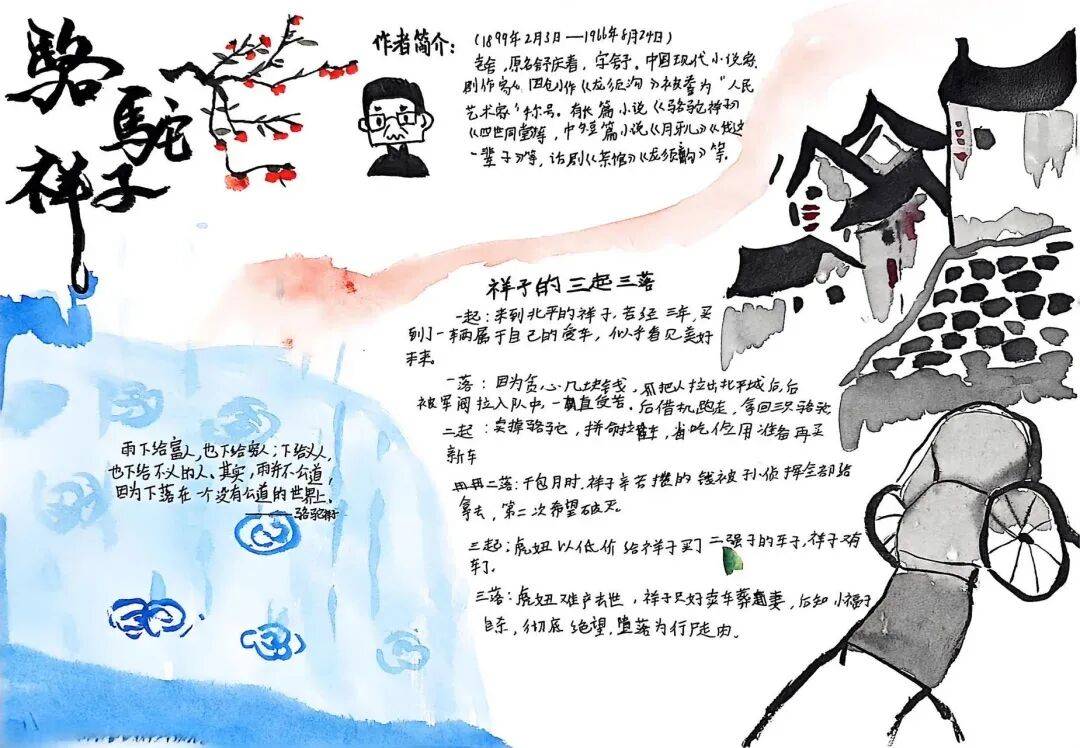 骆
驼
祥子
作者简介:
(1899年2月3日——1966年8月24日)
老舍,原名舒庆春,字舍予,中国现代小说家
剧作家。因创作《龙须沟》被誉为“人民
艺术家”称号。有长篇小说《骆驼祥子》
《四世同堂等,中短篇小说《月牙儿》《我这
一辈子》等,话剧《茶馆》《龙须沟》等。
祥子的三起三落
一起:来到北平的祥子,苦经三年,买
到了一辆属于自己的爱车,似乎看见美好
未来。
一落:因为贪心几块钱,把人拉出北平城后,后
被军阀拉入队中,一直受苦。后借机跑走,拿回三只骆驼
二起:卖掉骆驼,拼命拉车,省吃俭用准备再买
新车
二落:干包月时,祥子辛苦攒的钱被孙侦探全部给
拿去,第二次希望破灭。
三起:虎妞以低价给祥子买了二强子的车子,祥子又有
车了。
三落:虎妞难产去世,祥子只好卖车葬妻,后知小福子
自杀,彻底绝望,堕落为行尸走肉。
雨下给富人,也下给穷人;下给义人,
也下给不义的人。其实,雨并不公道,
因为下落在一个没有公道的世界上。
——骆驼祥子